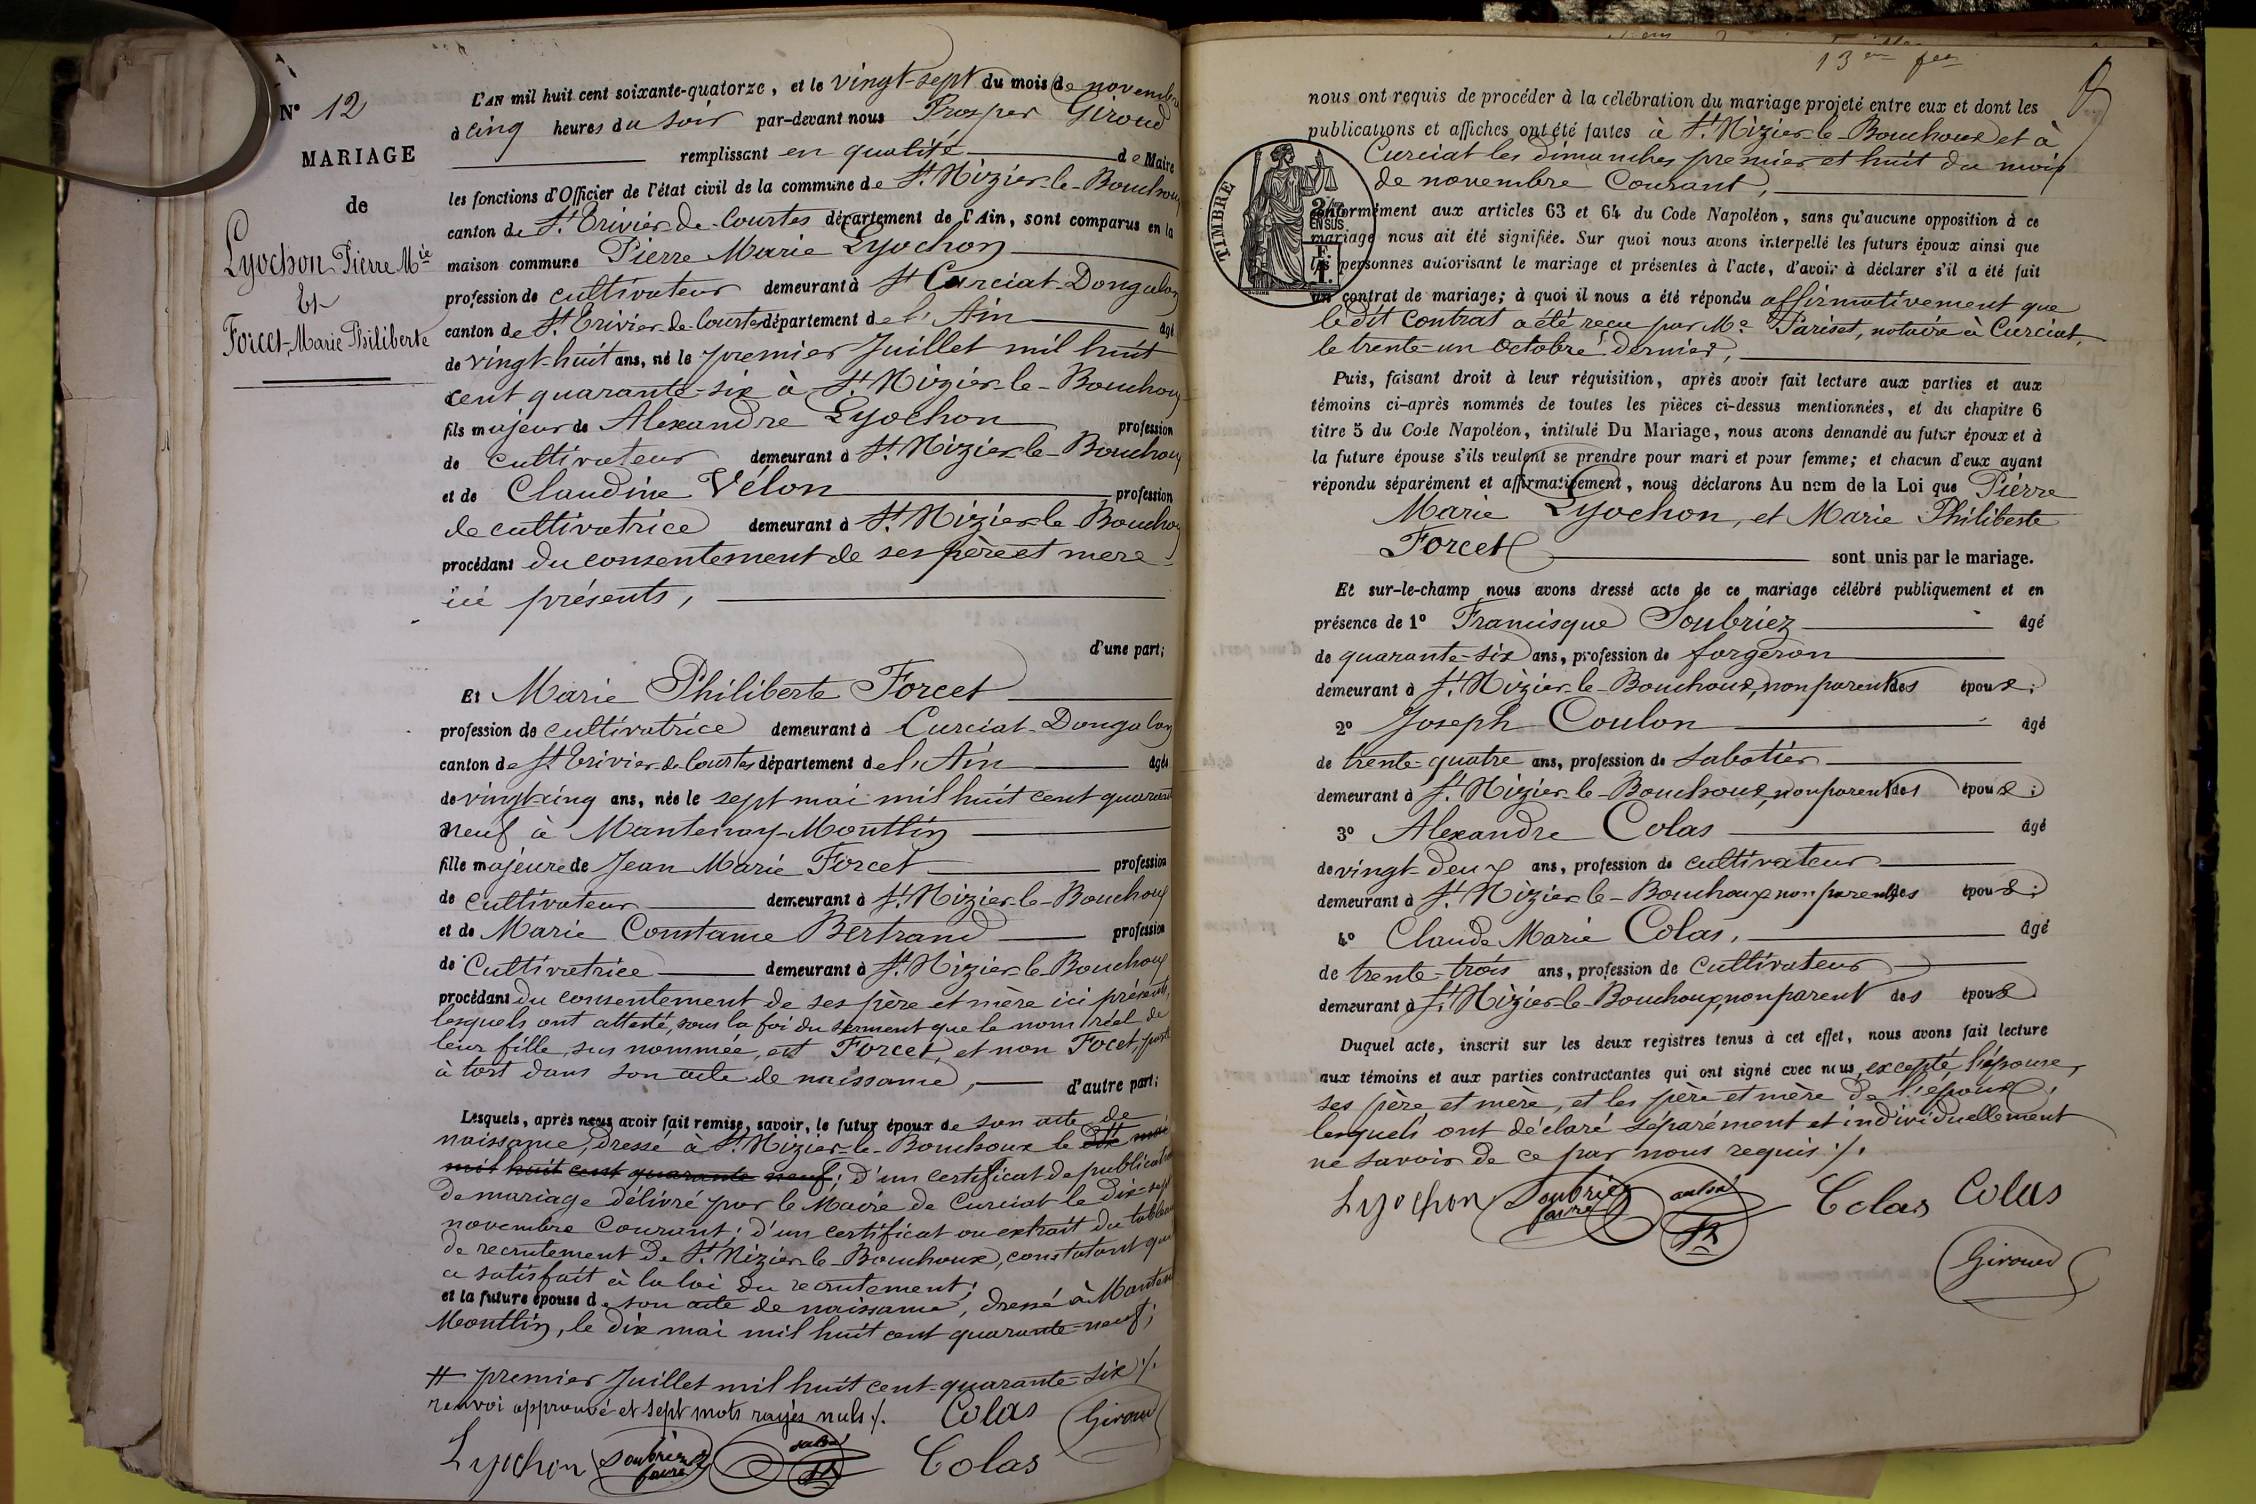 N° 12
MARIAGE
de
Lyochon Pierre Mie
Et
Forcet, Marie Philiberte
L'AN mil huit cent soixante-quatorze, et le vingt-sept du mois de novembre
à cinq heures du soir par-devant nous Prosper Giroud
remplissant en qualité de Maire
les fonctions d'Officier de l'état civil de la commune de St Nizier-le-Bouchoux
canton de St Trivier-de-Courtes département de l'Ain, sont comparus en la
maison commune Pierre Marie Lyochon
profession de cultivateur demeurant à St Curciat-Dongalon
canton de St Trivier-de-Courtes département de l'Ain âgé
de vingt-huit ans, né le premier Juillet mil huit
cent quarante-six à St Nizier-le-Bouchoux
fils majeur de Alexandre Lyochon profession
de cultivateur demeurant à St Nizier-le-Bouchoux
et de Claudine Vélon profession
de cultivatrice demeurant à St Nizier-le-Bouchoux
procédant du consentement de ses père et mère
ici présents,
d'une part;
Et Marie Philiberte Forcet
profession de cultivatrice demeurant à Curciat-Dongalon
canton de St Trivier-de-Courtes département de l'Ain âgée
de vingt-cinq ans, née le sept mai mil huit cent quarante
neuf à Mantenay-Montlin
fille majeure de Jean Marie Forcet profession
de cultivateur demeurant à St Nizier-le-Bouchoux
et de Marie Constance Bertrand profession
de Cultivatrice demeurant à St Nizier-le-Bouchoux
procédant du consentement de ses père et mère ici présents,
lesquels ont attesté, sous la foi du serment que le nom réel de
leur fille, sus nommée, est Forcet, et non Focet, porté
à tort dans son acte de naissance, d'autre part;
Lesquels, après nous avoir fait remise, savoir, le futur époux de son acte de
naissance, dressé à St Nizier-le-Bouchoux le dix mai
mil huit cent quarante neuf; d'un certificat de publication
de mariage délivré par le Maire de Curciat le dix-sept
novembre Courant; d'un certificat ou extrait du tableau
de recrutement de St Nizier-le-Bouchoux, constatant qu'il
a satisfait à la loi du recrutement;
et la future épouse de son acte de naissance, dressé à Mantenay
Montlin, le dix mai mil huit cent quarante-neuf;
# premier Juillet mil huit cent-quarante-six ./.
renvoi approuvé et sept mots rayés nuls ./. Colas Giroud
Lyochon Soubriez faure Colas
13me feet
nous ont requis de procéder à la célébration du mariage projeté entre eux et dont les
publications et affiches ont été faites à St Nizier-le-Bouchoux et à
Curciat les dimanches premier et huit du mois
de novembre Courant,
TIMBRE
2/10 EN SUS
1 F.
conformément aux articles 63 et 64 du Code Napoléon, sans qu'aucune opposition à ce
mariage nous ait été signifiée. Sur quoi nous avons interpellé les futurs époux ainsi que
les personnes autorisant le mariage et présentes à l'acte, d'avoir à déclarer s'il a été fait
un contrat de mariage; à quoi il nous a été répondu affirmativement que
le dit contrat a été reçu par Me Pariset, notaire à Curciat,
le trente-un octobre dernier,
Puis, faisant droit à leur réquisition, après avoir fait lecture aux parties et aux
témoins ci-après nommés de toutes les pièces ci-dessus mentionnées, et du chapitre 6
titre 5 du Code Napoléon, intitulé Du Mariage, nous avons demandé au futur époux et à
la future épouse s'ils veulent se prendre pour mari et pour femme; et chacun d'eux ayant
répondu séparément et affirmativement, nous déclarons Au nom de la Loi que Pierre
Marie Lyochon, et Marie Philiberte
Forcet sont unis par le mariage.
Et sur-le-champ nous avons dressé acte de ce mariage célébré publiquement et en
présence de 1° Francisque Soubriez âgé
de quarante-six ans, profession de forgeron
demeurant à St Nizier-le-Bouchoux, non parent des époux;
2° Joseph Coulon âgé
de trente-quatre ans, profession de sabotier
demeurant à St Nizier-le-Bouchoux, non parent des époux;
3° Alexandre Colas âgé
de vingt-deux ans, profession de cultivateur
demeurant à St Nizier-le-Bouchoux non parent des époux;
4° Claude Marie Colas, âgé
de trente-trois ans, profession de cultivateur
demeurant à St Nizier-le-Bouchoux, non parent des époux.
Duquel acte, inscrit sur les deux registres tenus à cet effet, nous avons fait lecture
aux témoins et aux parties contractantes qui ont signé avec nous, excepté l'épouse,
ses père et mère, et les père et mère de l'époux,
lesquels ont déclaré séparément et individuellement
ne savoir de ce par nous requis ./.
Lyochon Soubriez faure Colas Colas
Giroud